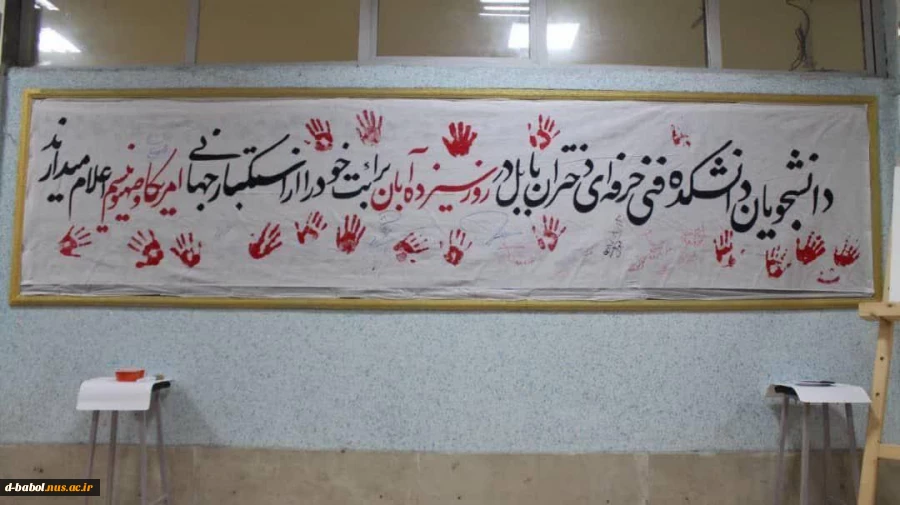 دانشجویان دانشکده فنی حرفه‌ای دختران بابل در روز سیزده آبان برائت خود را از استکبار جهانی امریکا و صهیونیسم اعلام میدارند
d-babol.nus.ac.ir